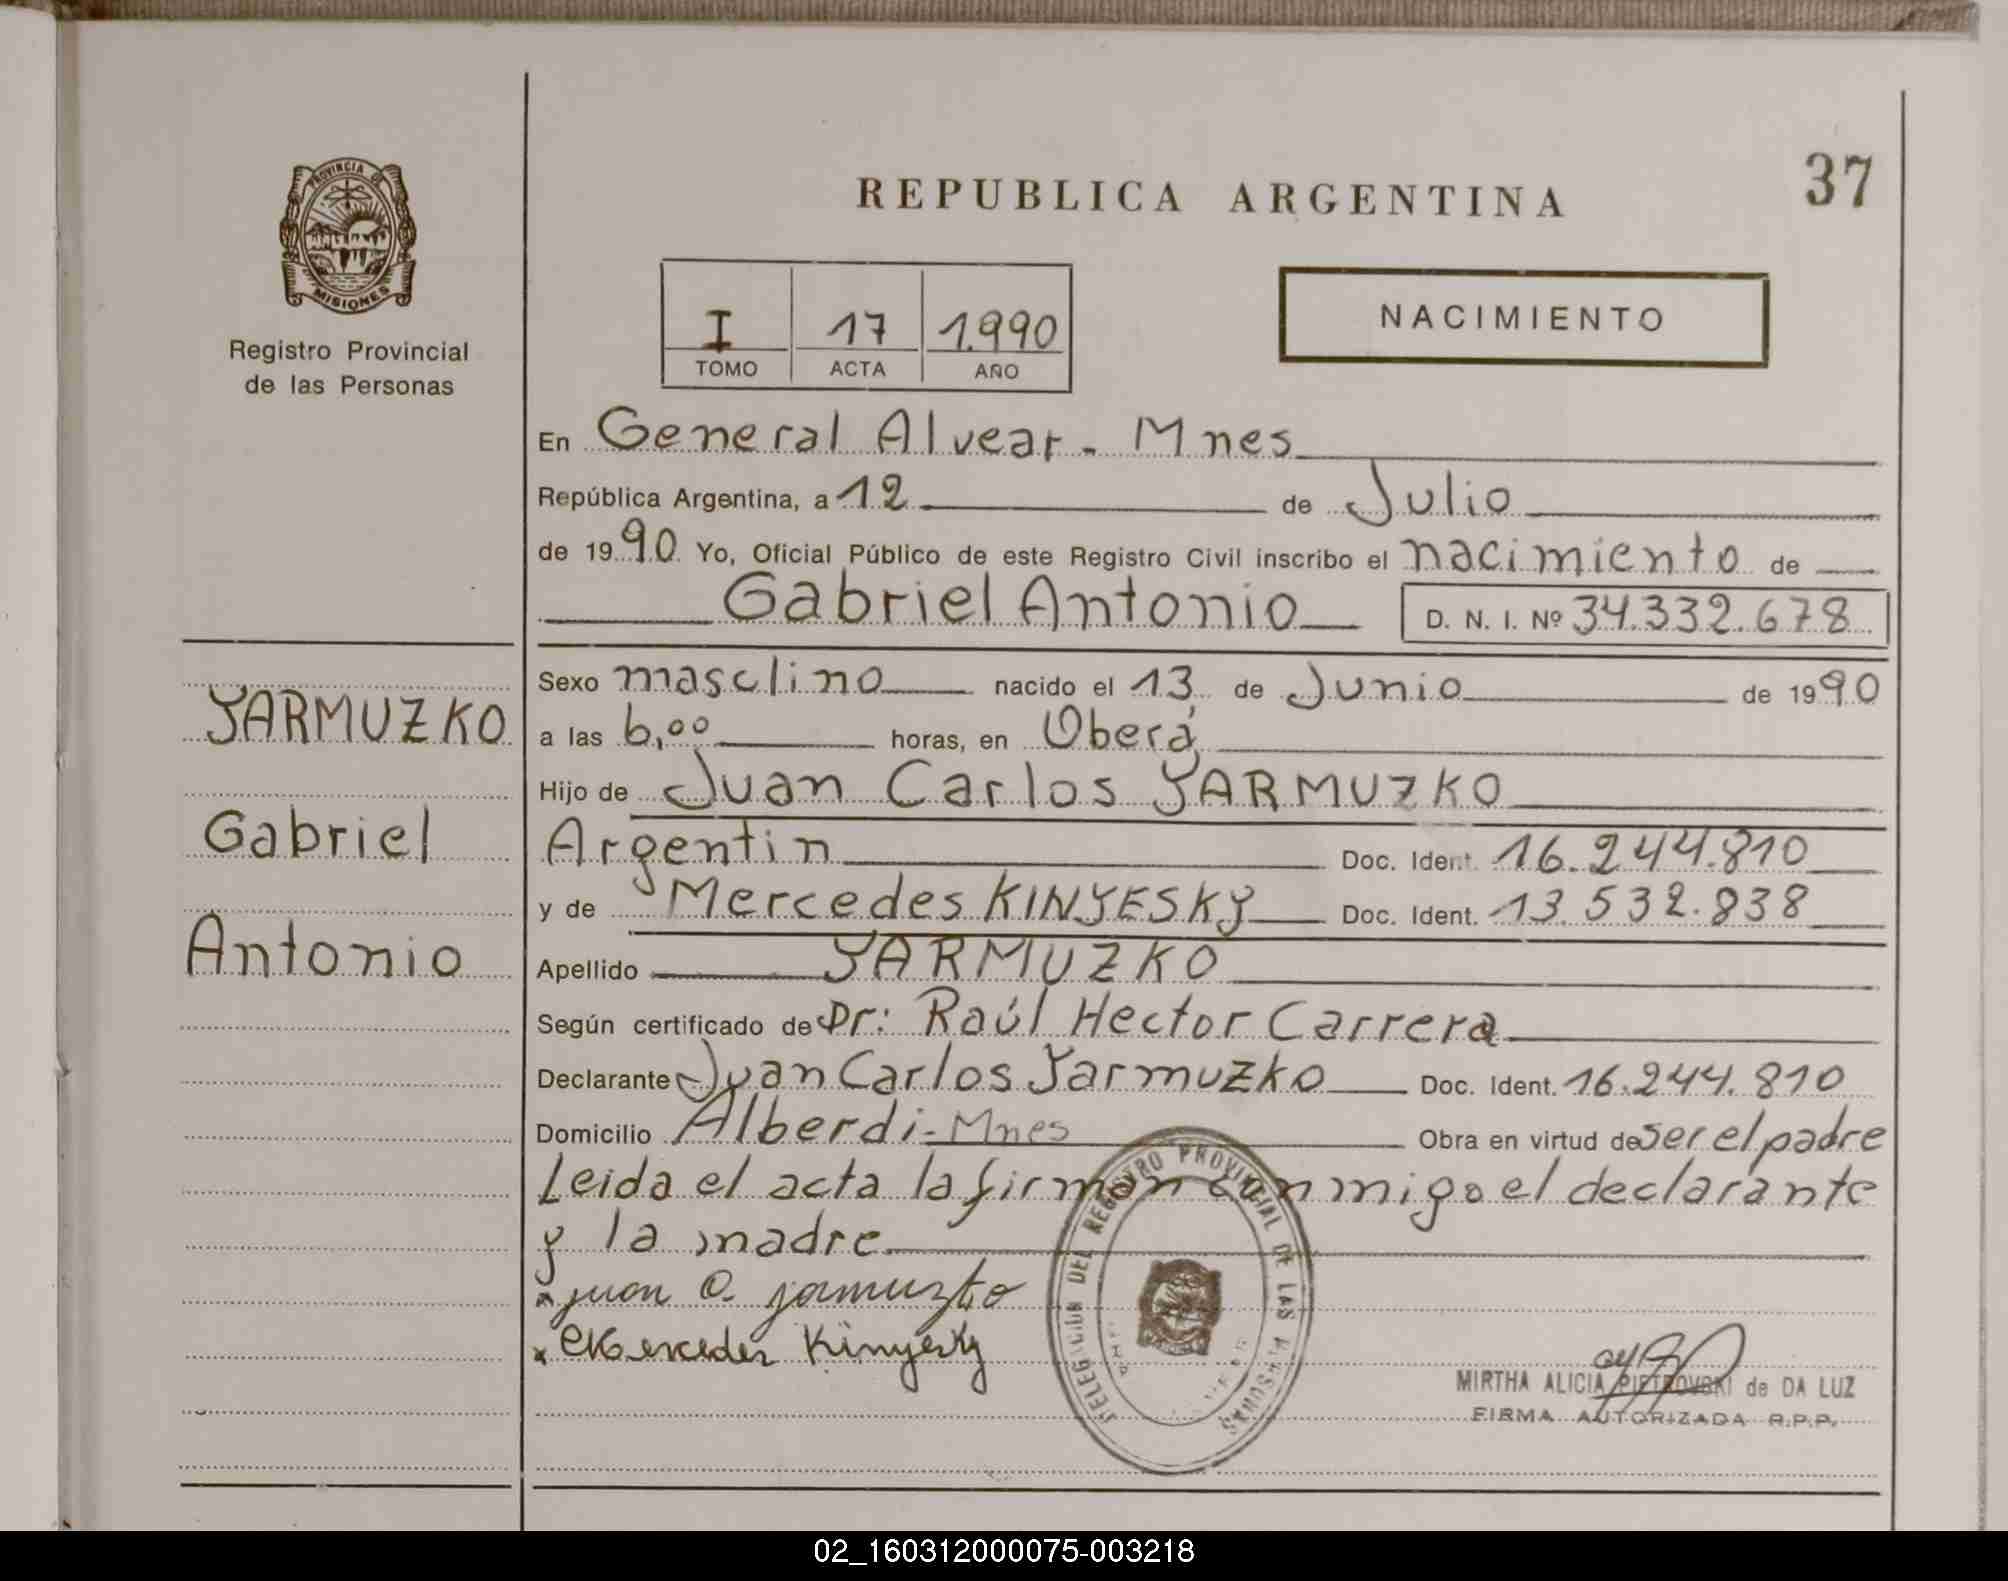 PROVINCIA DE
MISIONES
Registro Provincial
de las Personas
YARMUZKO
Gabriel
Antonio
REPUBLICA ARGENTINA
37
I 17 1.990
TOMO ACTA AÑO
NACIMIENTO
En General Alvear - Mnes
República Argentina, a 12 de Julio
de 1990 Yo, Oficial Público de este Registro Civil inscribo el nacimiento de
Gabriel Antonio D. N. I. Nº 34.332.678
Sexo masclino nacido el 13 de Junio de 1990
a las 6,00 horas, en Oberá
Hijo de Juan Carlos YARMUZKO
Argentin Doc. Ident. 16.244.810
y de Mercedes KINYESKY Doc. Ident. 13.532.838
Apellido YARMUZKO
Según certificado de Dr: Raúl Hector Carrera
Declarante Juan Carlos Yarmuzko Doc. Ident. 16.244.810
Domicilio Alberdi - Mnes Obra en virtud de ser el padre
Leida el acta la firman conmigo el declarante
y la madre
x juan C. jarmuzko
x Mercedes Kinyesky
DELEGACION DEL REGISTRO PROVINCIAL DE LAS PERSONAS
MIRTHA ALICIA PIETROVSKI de DA LUZ
FIRMA AUTORIZADA R.P.P.
02_160312000075-003218